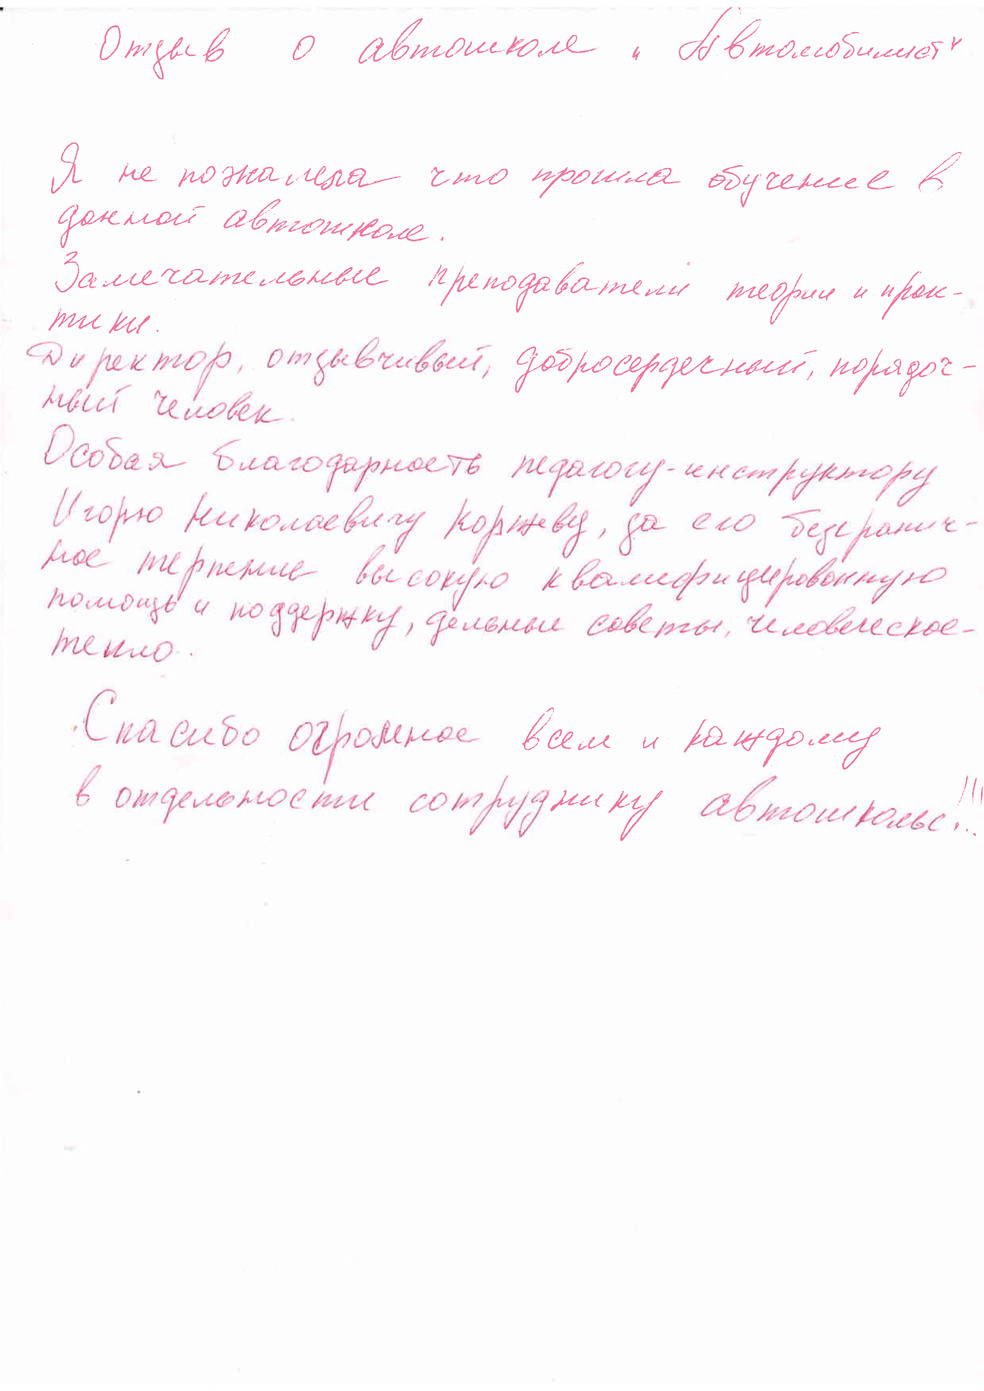 Отзыв о автошколе "Автомобилист"
Я не пожалела что прошла обучение в
данной автошколе.
Замечательные преподаватели теории и прак-
тики.
Директор, отзывчивый, добросердечный, порядоч-
ный человек.
Особая благодарность педагогу-инструктору
Игорю Николаевичу Коржеву, за его безгранич-
ное терпение высокую квалифицированную
помощь и поддержку, дельные советы, человеческое-
тепло.
Спасибо огромное всем и каждому
в отдельности сотруднику автошколы!!!